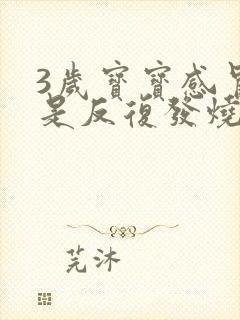 3歲寶寶感冒
是反復發燒
芫沐